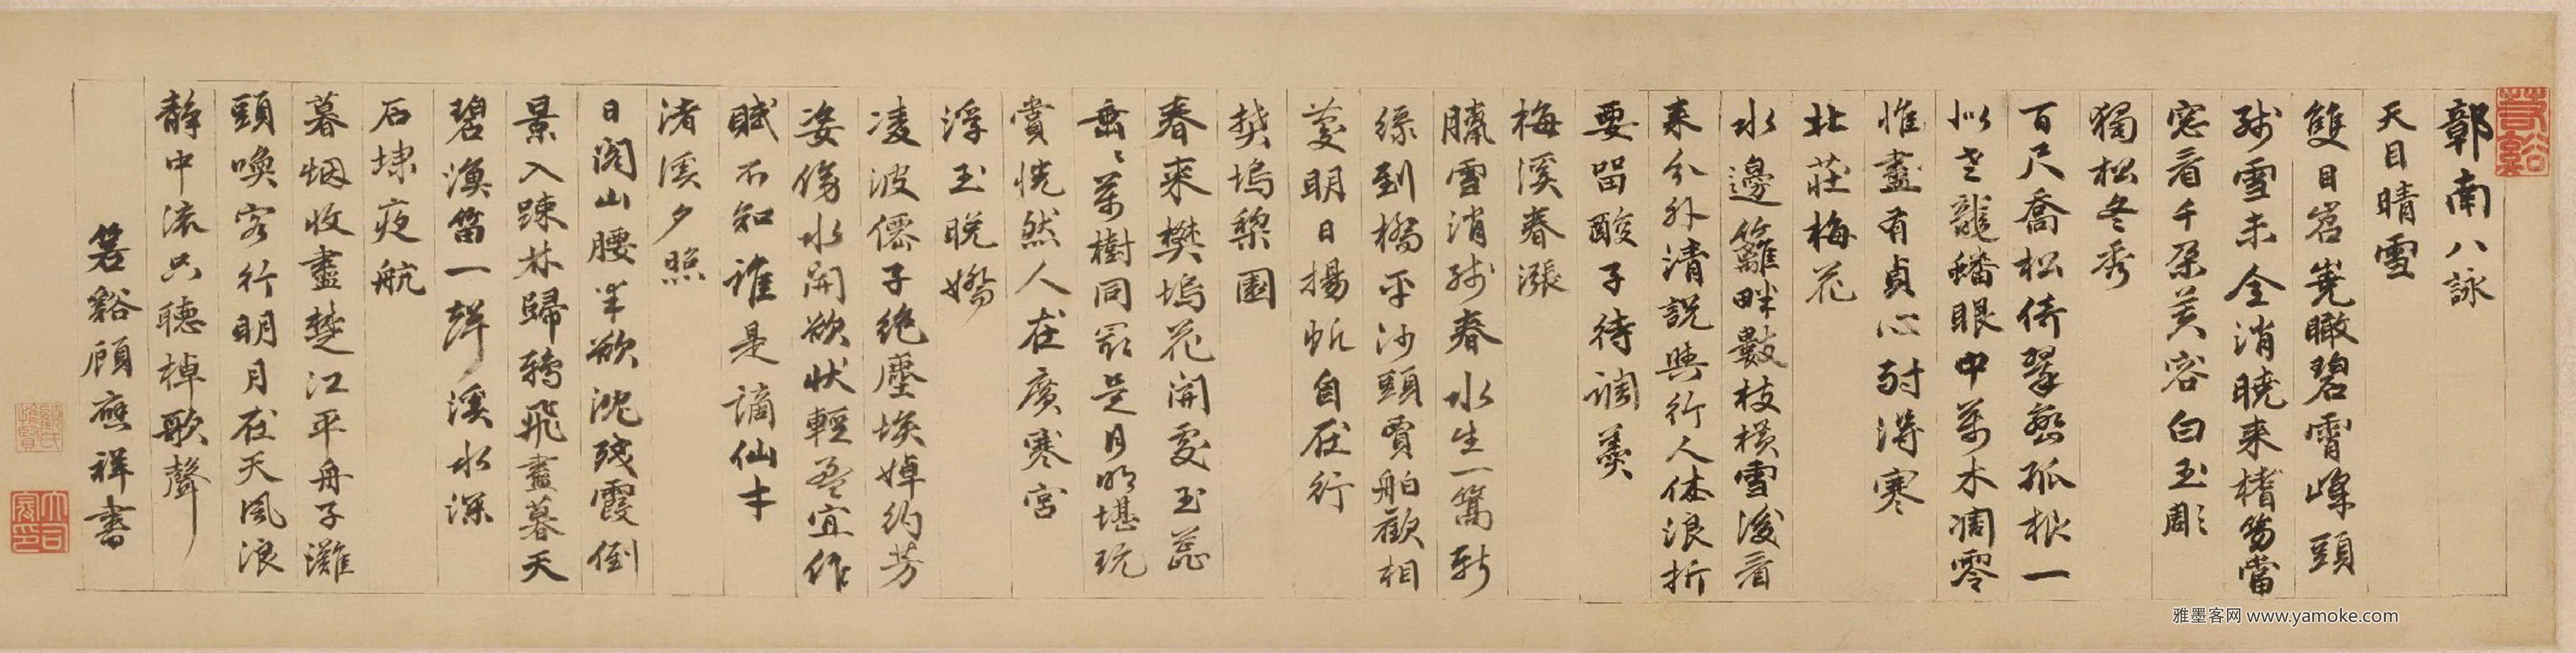 鄣南八詠
天目晴雪
雙目岧嶤瞰碧霄峰頭
殘雪未全消曉来稽笏當
窓看千朶芙容白玉彫
獨松冬秀
百尺喬松倚翠巒孤根一
似老龍蟠眼中萬木凋零
惟盡有貞心耐得寒
北莊梅花
水邊籬畔數枝橫雪後看
来分外清説與行人休浪折
要留酸子待調羹
梅溪春漲
臘雪消殘春水生一篙新
綠到橋平沙頭賈舶歡相
慶明日揚帆自在行
樊塢梨園
春来樊塢花開處玉蕊
垂垂萬樹同最是月明堪玩
賞恍然人在廣寒宮
浮玉晚嬌
凌波僊子絶塵埃婥約芳
姿傍水開欲状輕盈宜作
賦不知誰是謫仙才
渚溪夕照
日閣山腰半欲沈殘霞倒
景入踈林歸鴉飛盡暮天
碧漁笛一聲溪水深
石埭夜航
暮烟收盡楚江平舟子灘
頭喚客行明月在天風浪
靜中流只聽棹歌聲
箬谿顧應祥書
箬谿
顧氏
雅墨客网 www.yamoke.com